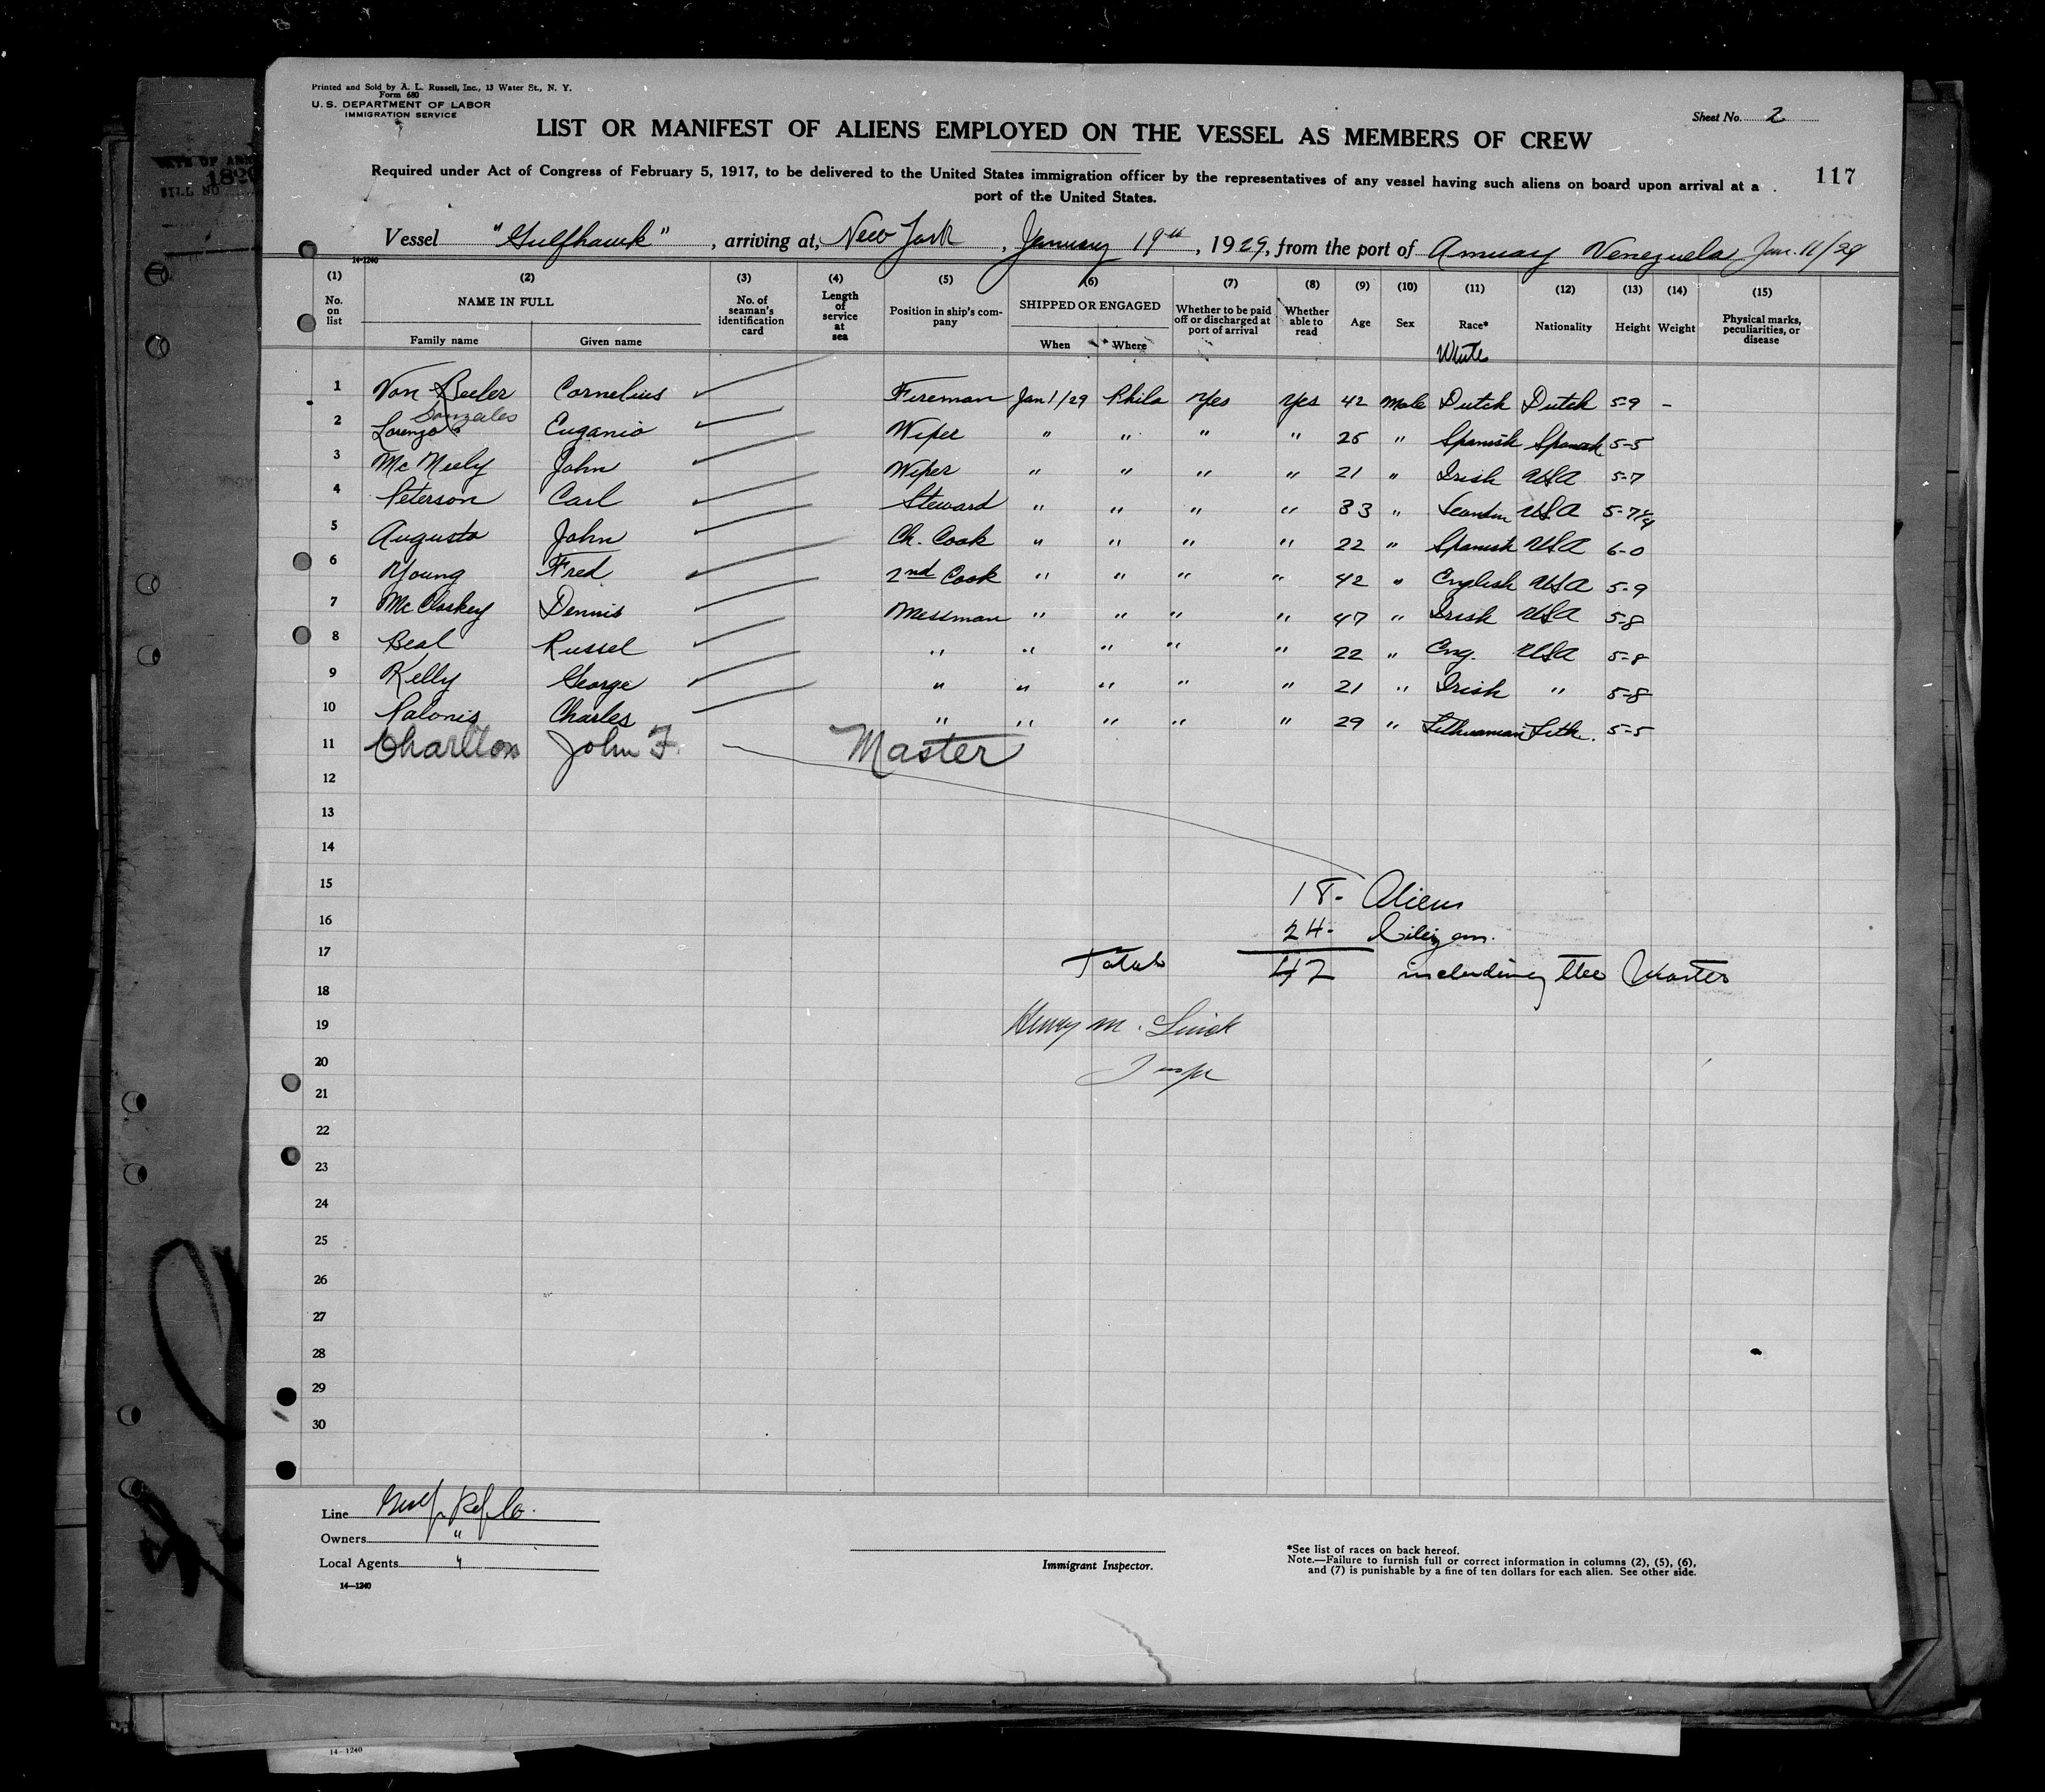 Printed and Sold by A. L. Russell, Inc., 13 Water St., N. Y.
Form 680
U. S. DEPARTMENT OF LABOR
IMMIGRATION SERVICE
Sheet No. 2
LIST OR MANIFEST OF ALIENS EMPLOYED ON THE VESSEL AS MEMBERS OF CREW
117
Required under Act of Congress of February 5, 1917, to be delivered to the United States immigration officer by the representatives of any vessel having such aliens on board upon arrival at a
port of the United States.
Vessel "Gulfhawk", arriving at, New York, January 19th, 1929, from the port of Amuay Venezuela Jan. 11/29
14-1240
(1) (2) (3) (4) (5) (6) (7) (8) (9) (10) (11) (12) (13) (14) (15)
No. on list NAME IN FULL No. of seaman's identification card Length of service at sea Position in ship's company SHIPPED OR ENGAGED Whether to be paid off or discharged at port of arrival Whether able to read Age Sex Race* Nationality Height Weight Physical marks, peculiarities, or disease
Family name Given name When Where
White
1 Van Beeler Cornelius Fireman Jan 1/29 Phila Yes Yes 42 Male Dutch Dutch 5-9 -
Gonzales
2 Lorenzo Euganio Wiper " " " " 25 " Spanish Spanish 5-5
3 Mc Neely John Wiper " " " " 21 " Irish USA 5-7
4 Peterson Carl Steward " " " " 33 " Scandin USA 5-7¼
5 Augusto John Ch. Cook " " " " 22 " Spanish USA 6-0
6 Young Fred 2nd Cook " " " " 42 " English USA 5-9
7 Mc Closkey Dennis Messman " " " " 47 " Irish USA 5-8
8 Beal Russel " " " " " 22 " Eng. USA 5-8
9 Kelly George " " " " " 21 " Irish " 5-8
10 Palonis Charles " " " " " 29 " Lithuanian Lith. 5-5
11 Charlton John F. Master
12
13
14
15 18- Aliens
16 24- Citizens
17 Total 42 including the Master
18
19 Henry M.
20 Inspr
21
22
23
24
25
26
27
28
29
30
Line Gulf Ref Co.
Owners "
Local Agents "
14-1240
Immigrant Inspector.
*See list of races on back hereof.
Note.—Failure to furnish full or correct information in columns (2), (5), (6),
and (7) is punishable by a fine of ten dollars for each alien. See other side.
14-1240